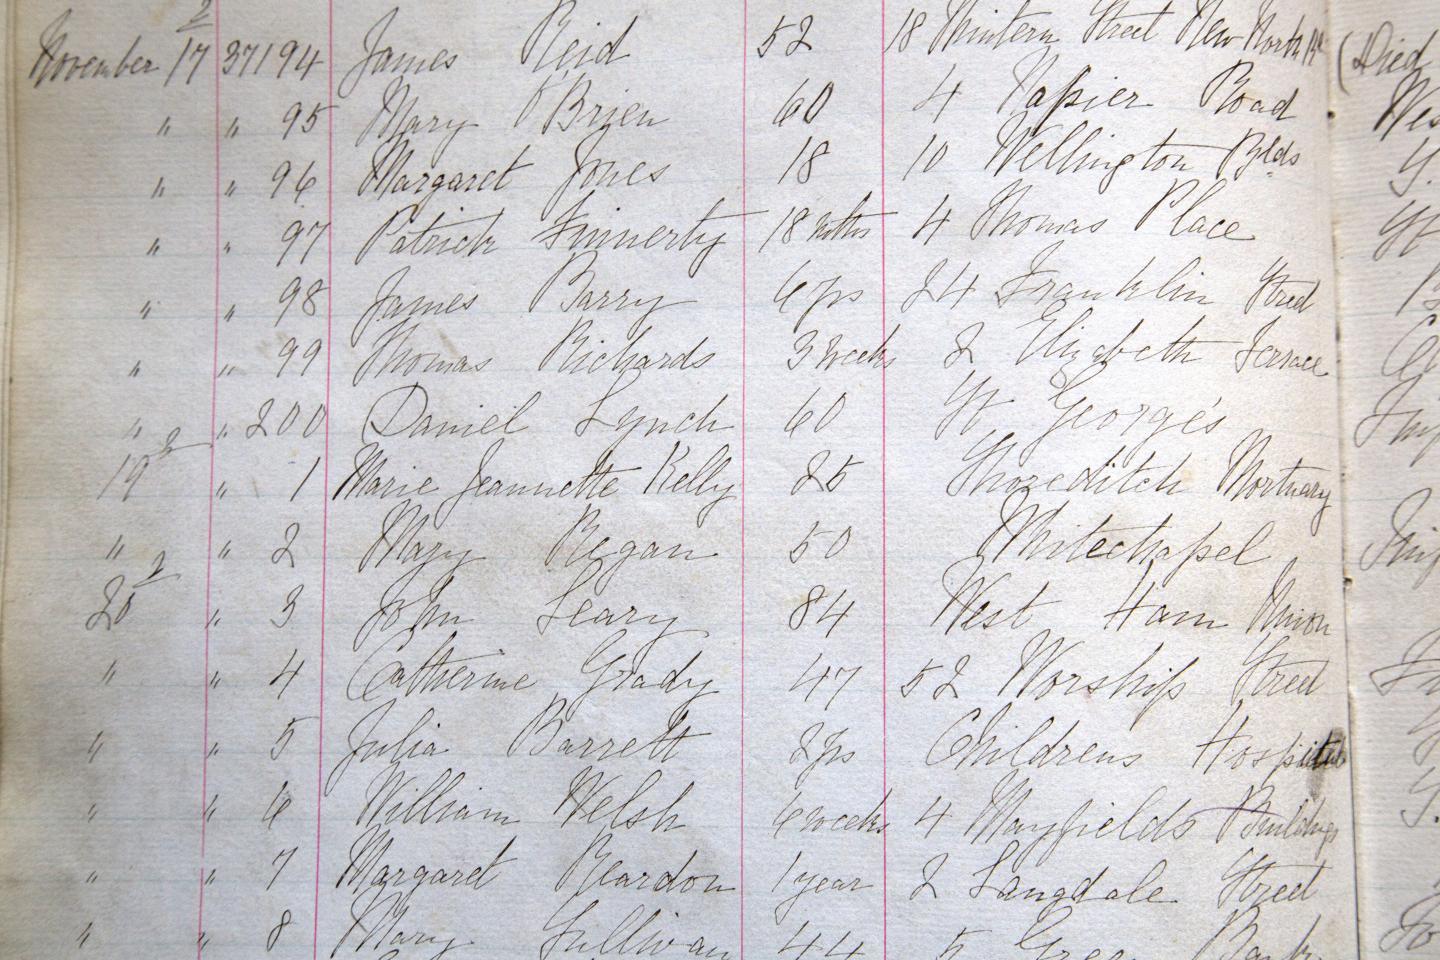 November 17 37194 James Reid 52 18 Mintern Street New North Rd (Died
" " 95 Mary O'Brien 60 4 Napier Road Wes
" " 96 Margaret Jones 18 10 Wellington Blds
" " 97 Patrick Finnerty 18 mths 4 Thomas Place
" " 98 James Barry 6 yrs 24 Franklin Street
" " 99 Thomas Richards 3 weeks 2 Elizabeth Terrace
" " 200 Daniel Lynch 60 St George's
19 " 1 Marie Jeannette Kelly 25 Shoreditch Mortuary
" " 2 Mary Regan 50 Whitechapel
20 " 3 John Leary 84 West Ham Union
" " 4 Catherine Grady 47 52 Worship Street
" " 5 Julia Barrett 2 yrs Childrens Hospital
" " 6 William Welsh 6 weeks 4 Mayfields Buildings
" " 7 Margaret Reardon 1 year 2 Langdale Street
" " 8 Mary Sullivan 44 5 Green Bank